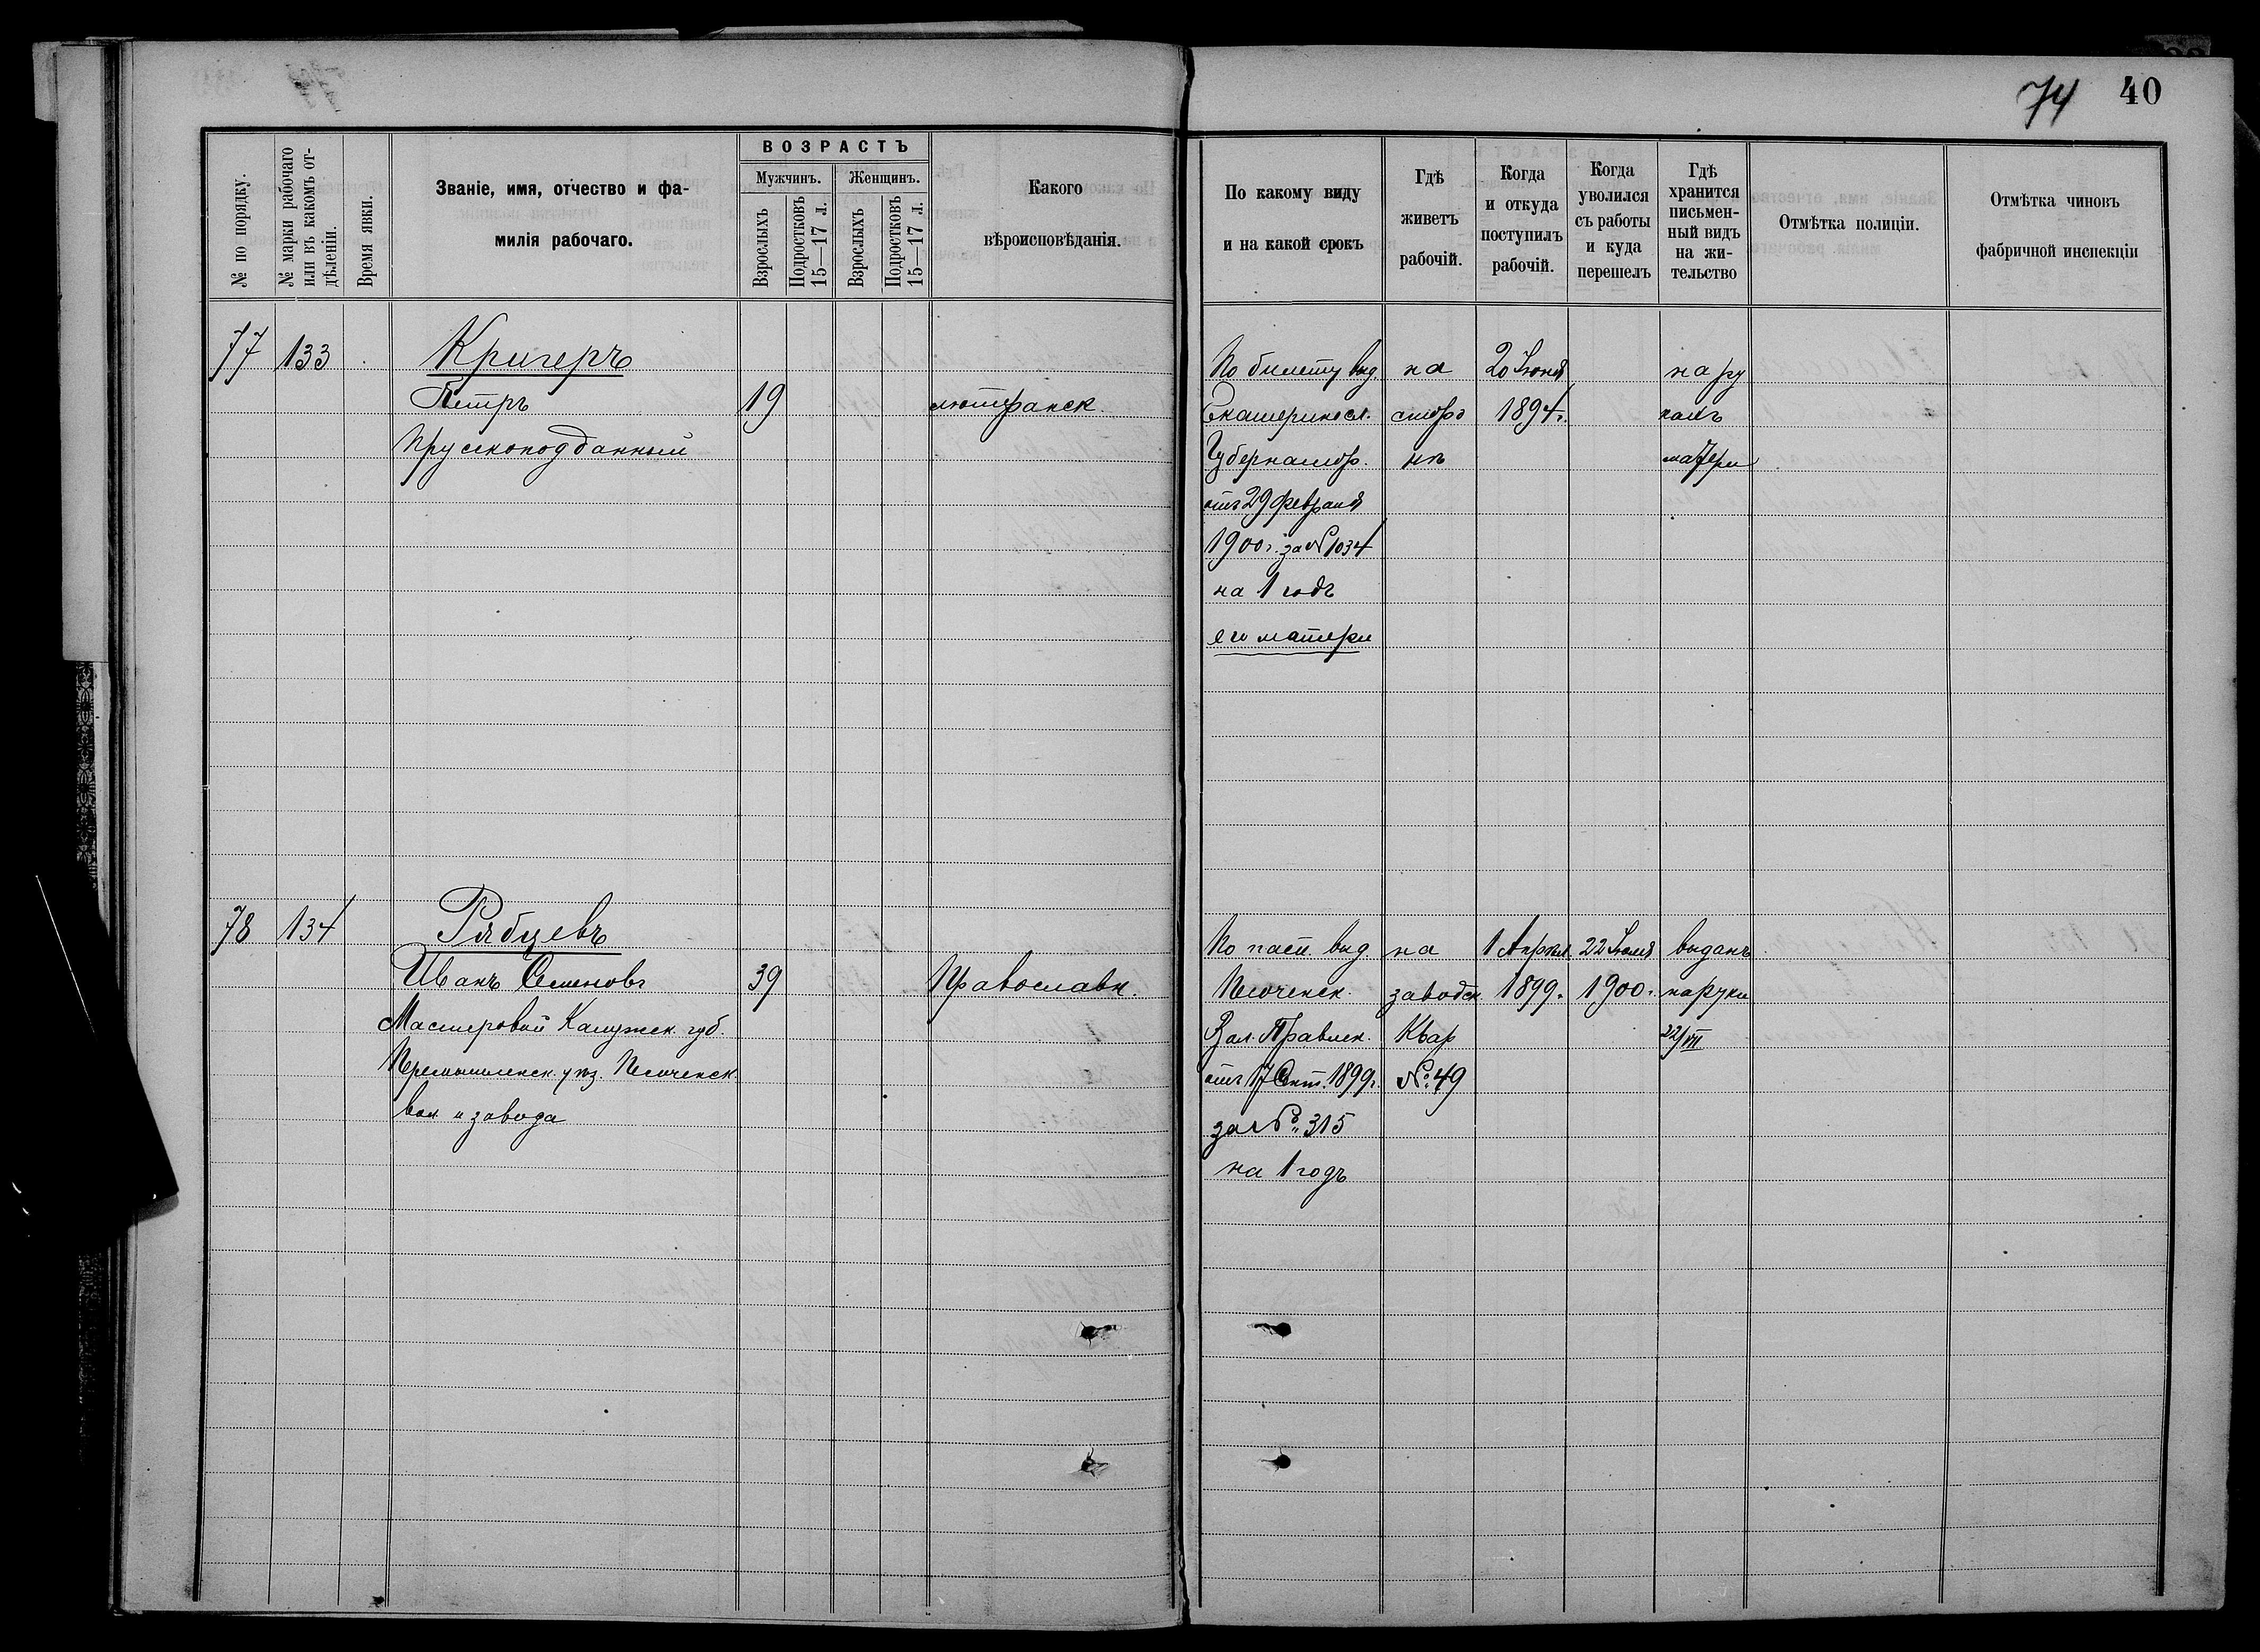 74 40
№ по порядку.
№ марки рабочаго
или въ какомъ от-
дѣленіи.
Время явки.
Званіе, имя, отчество и фа-
милія рабочаго.
ВОЗРАСТЪ
Мужчинъ. Женщинъ.
Взрослыхъ
Подростковъ
15—17 л.
Взрослыхъ
Подростковъ
15—17 л.
Какого
вѣроисповѣданія.
По какому виду
и на какой срокъ
Гдѣ
живетъ
рабочій.
Когда
и откуда
поступилъ
рабочій.
Когда
уволился
съ работы
и куда
перешелъ
Гдѣ
хранится
письмен-
ный видъ
на жи-
тельство
Отмѣтка полиціи.
Отмѣтка чиновъ
фабричной инспекціи
77 133 Кригеръ
Петръ 19 лютеранск.
Прусскоподданный
По билету выд.
Екатериносл.
Губернатор.
отъ 29 февраля
1900 г. за № 1034
на 1 годъ
его матери
на
сторо
нѣ
20 Іюня
1894 г.
на ру
кахъ
матери
78 134 Рябцевъ
Иванъ Семеновъ 39 Православн.
Мастеровой Калужск. губ.
Перемышленск. уѣз. Песоченск.
вол и завода
По пасп. выд.
Песоченск.
Вол. Правлен.
отъ 17 Окт. 1899 г.
за № 315
на 1 годъ
на
заводск.
Квар
№ 49
1 Апрѣл.
1899 г.
22 Іюля
1900 г.
выданъ
на руки
22/VII